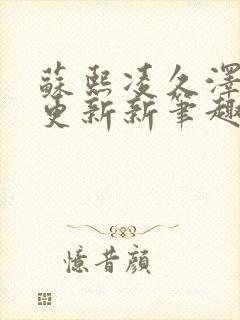 蘇熙凌久澤
更新新筆趣
憶昔顏